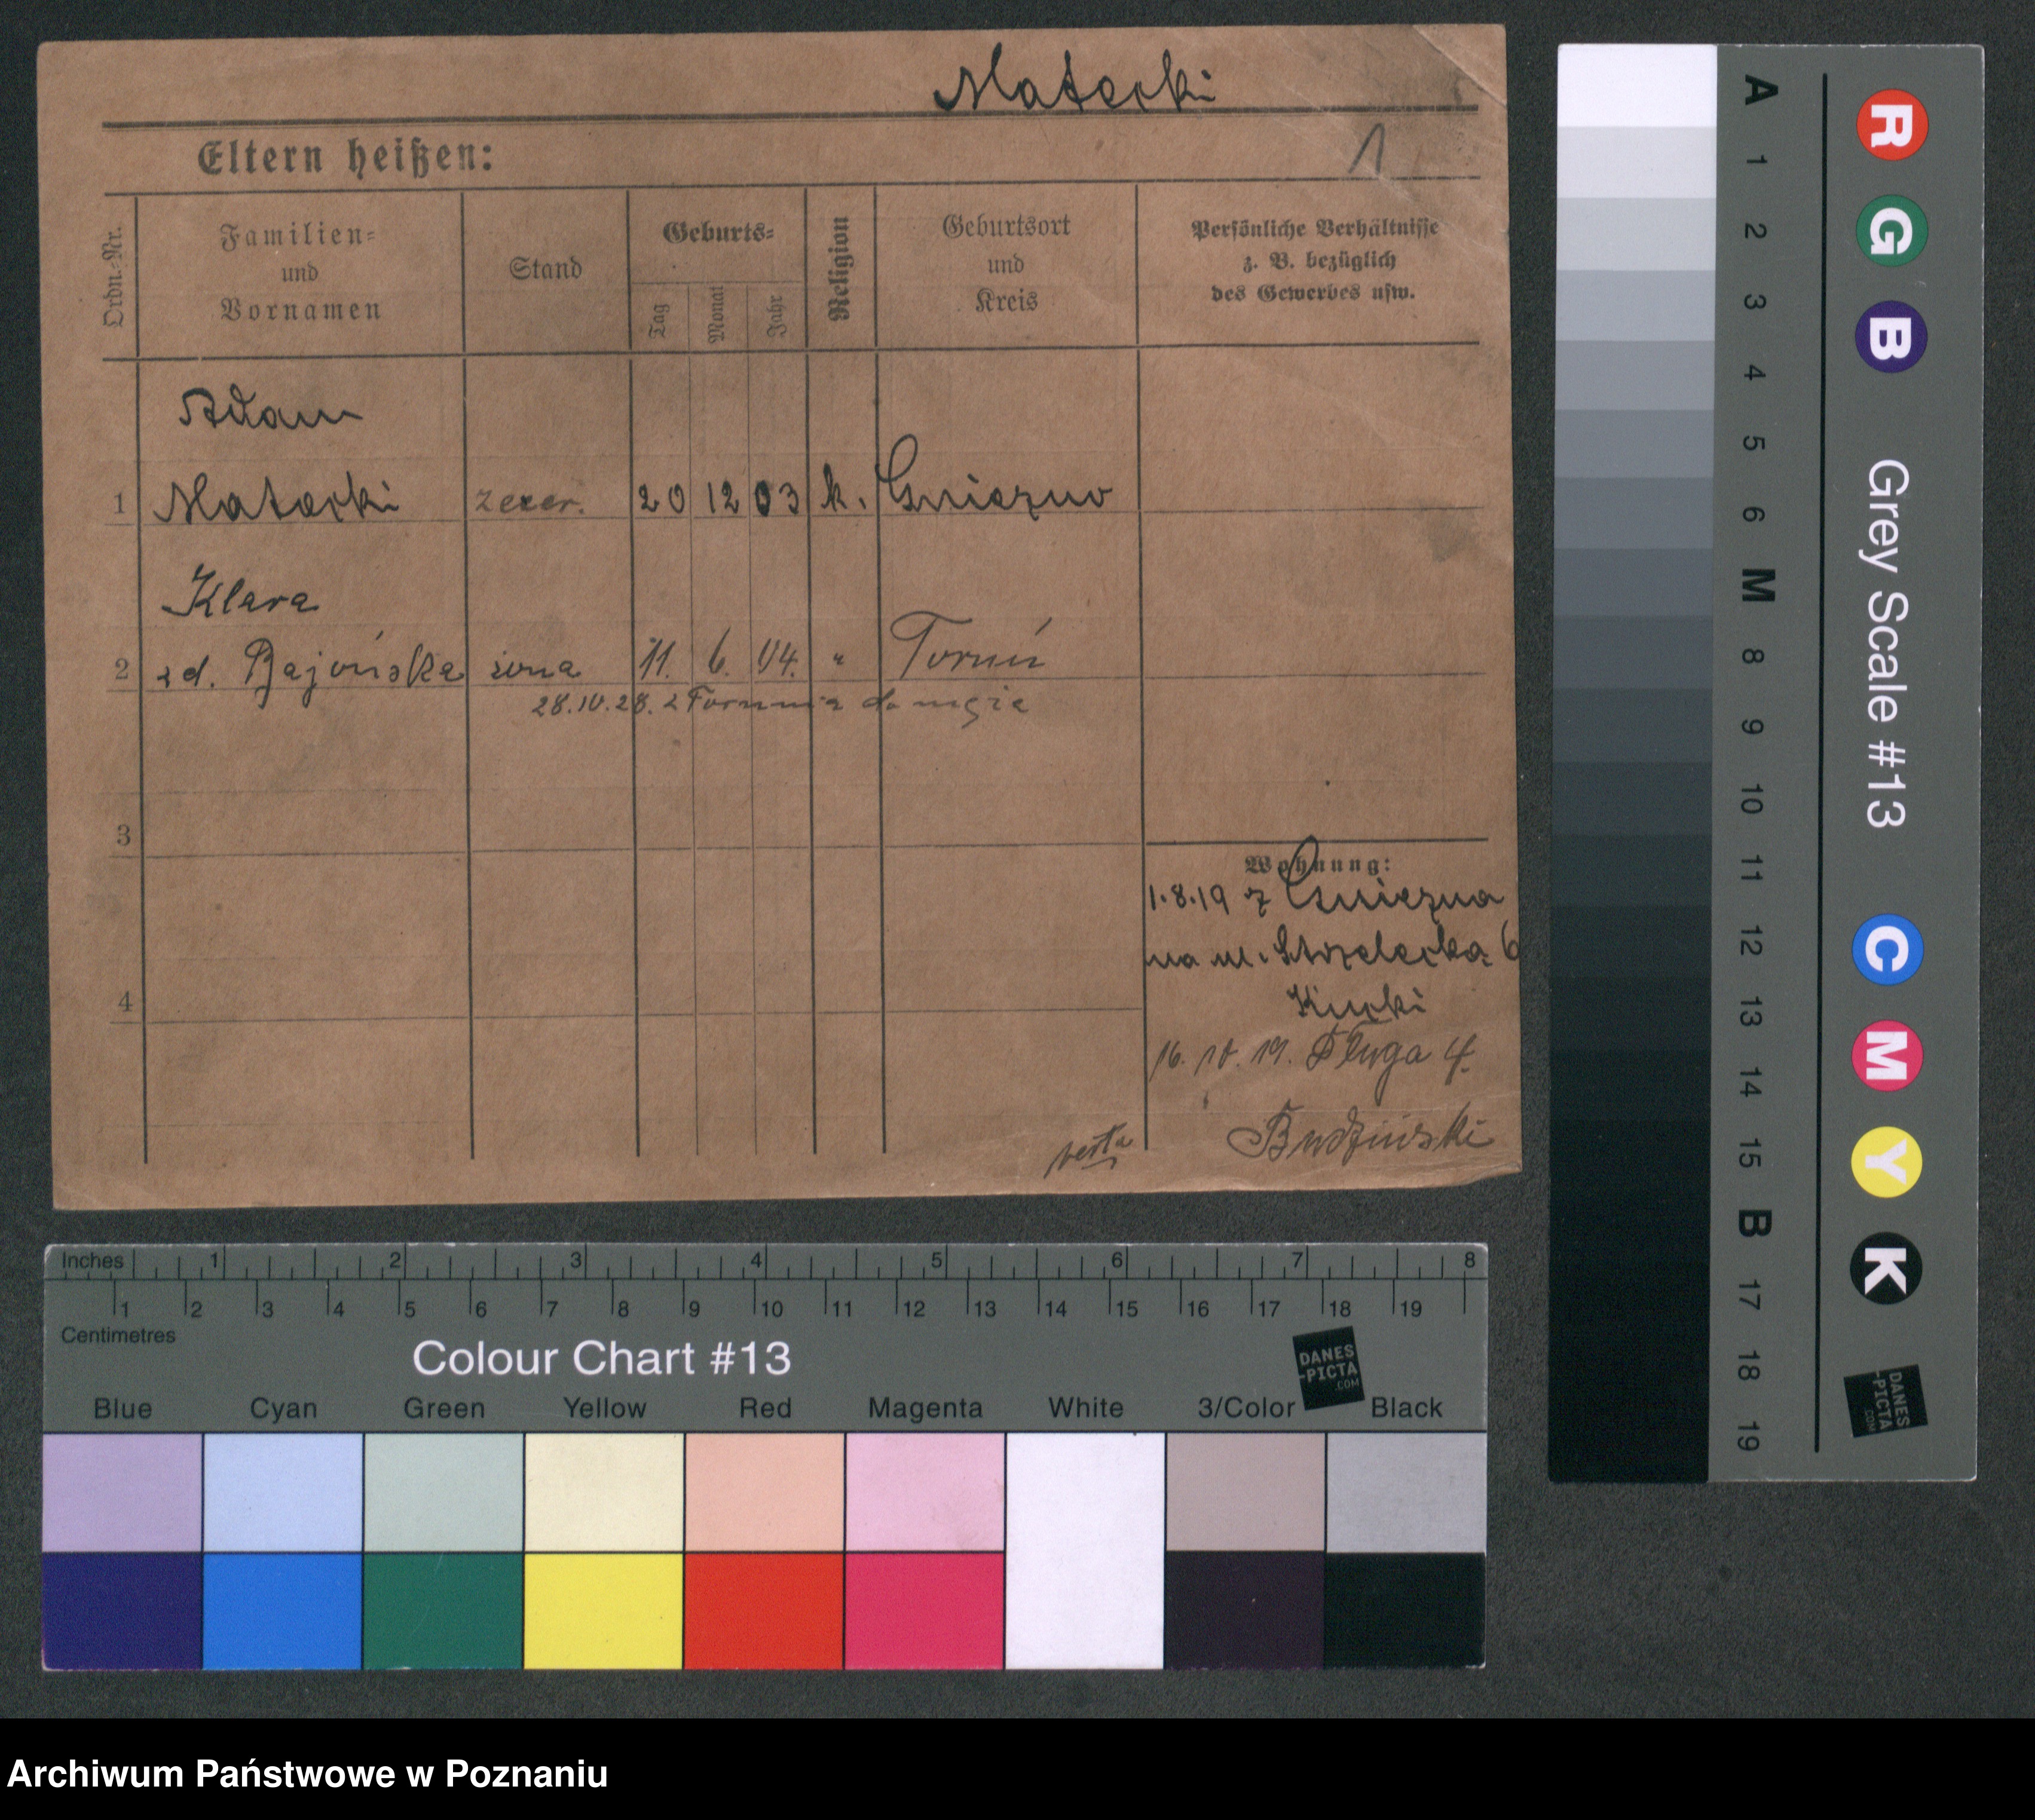 Matecki
1
Eltern heißen:
Ordn.-Nr.
Familien- und Vornamen
Stand
Geburts-
Tag
Monat
Jahr
Religion
Geburtsort und Kreis
Persönliche Verhältnisse z. B. bezüglich des Gewerbes usw.
Adam
1 Matecki zecer. 20 12 03 k. Gniezno
Klara
2 zd. Bajońska żona 11. 6. 04. " Toruń
28.IV.28. z Torunia do męża
3
4
Wohnung:
1.8.19 z Gniezna
na ul. Strzelecka 6
Kucki
16. 10. 19. Długa 4.
Budziński
verta
Inches 1 2 3 4 5 6 7 8
1 2 3 4 5 6 7 8 9 10 11 12 13 14 15 16 17 18 19
Centimetres
Colour Chart #13
DANES
-PICTA
.COM
Blue Cyan Green Yellow Red Magenta White 3/Color Black
R G B Grey Scale #13 C M Y K
A 1 2 3 4 5 6 M 8 9 10 11 12 13 14 15 B 17 18 19
DANES
-PICTA
.COM
Archiwum Państwowe w Poznaniu